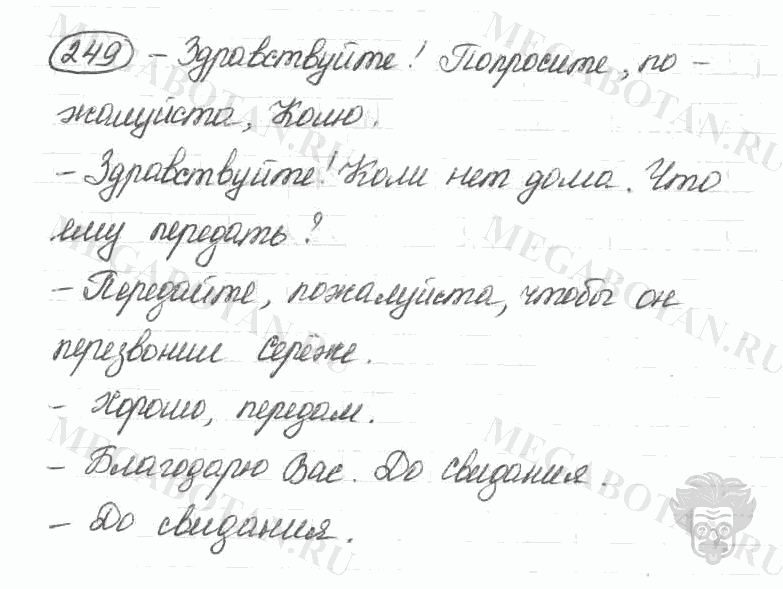 249 – Здравствуйте! Попросите, по-
жалуйста, Колю.
– Здравствуйте! Коли нет дома. Что
ему передать?
– Передайте, пожалуйста, чтобы он
перезвонил Серёже.
– Хорошо, передам.
– Благодарю Вас. До свидания.
– До свидания.
MEGABOTAN.RU
MEGABOTAN.RU
MEGABOTAN.RU
MEGABOTAN.RU
MEGABOTAN.RU
MEGABOTAN.RU